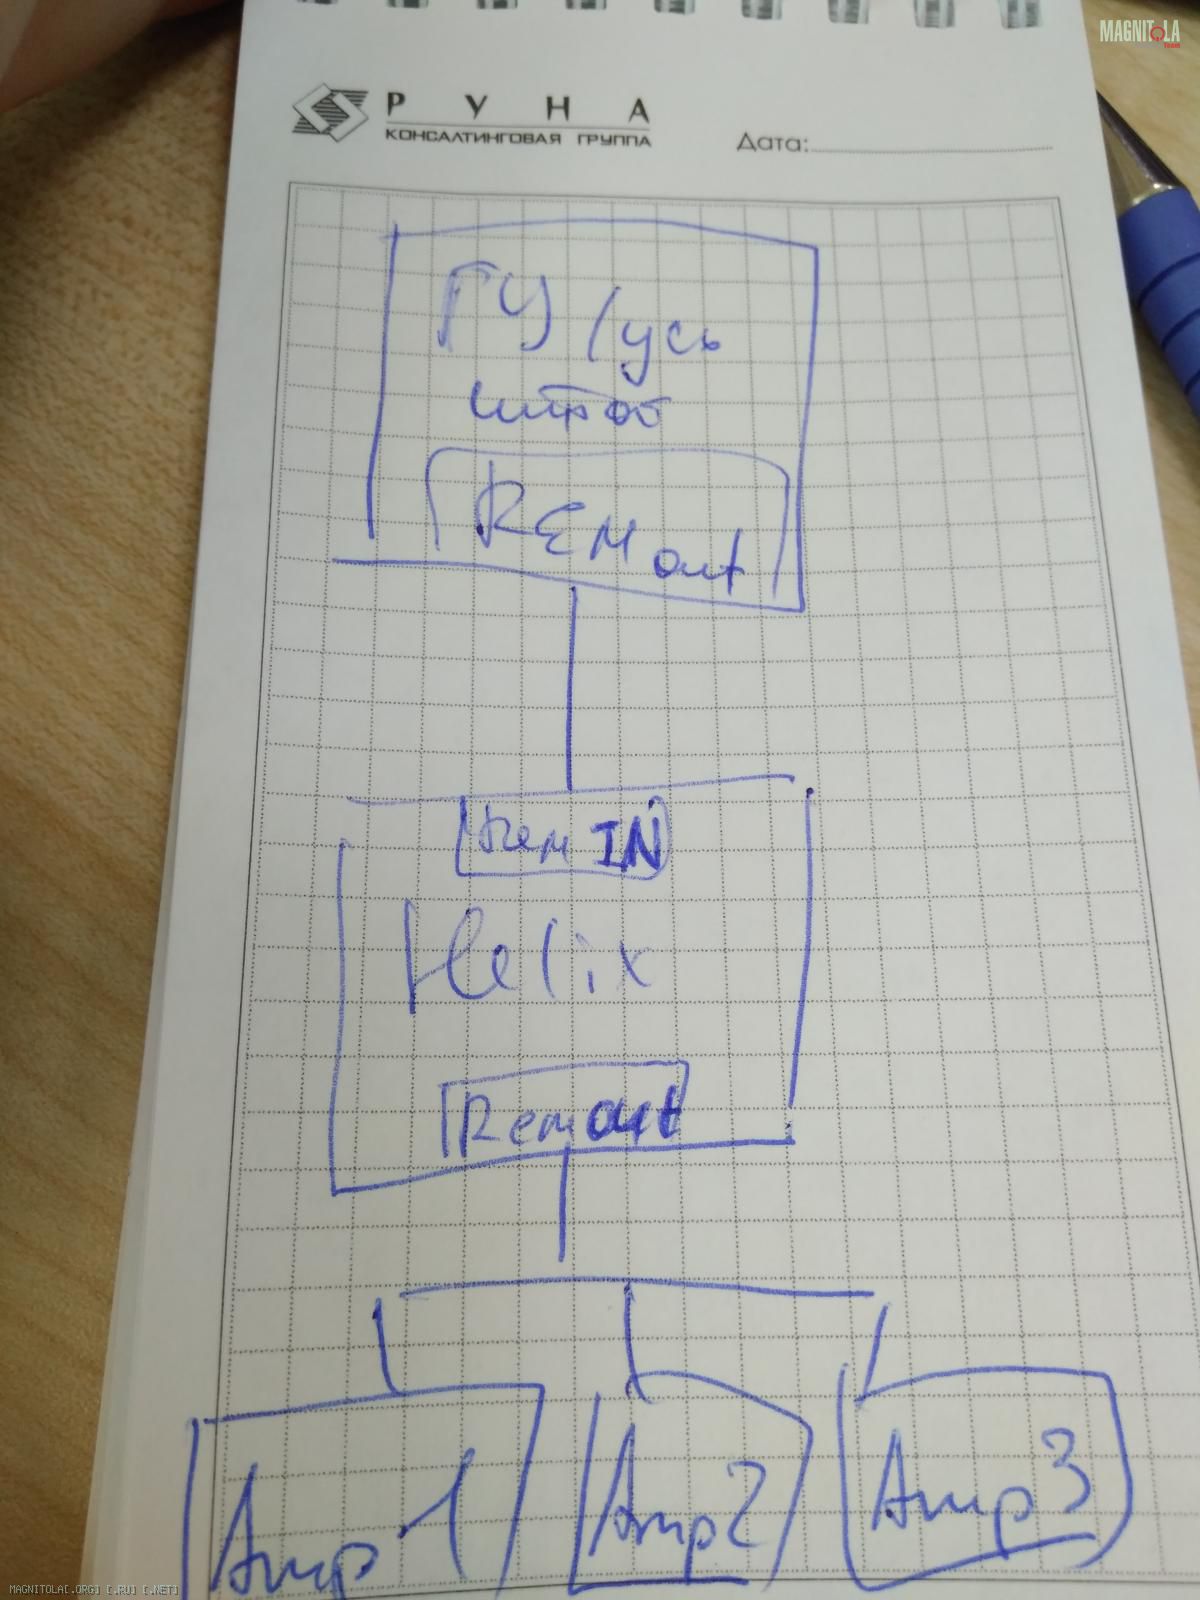 MAGNITOLA
Team
РУНА
КОНСАЛТИНГОВАЯ ГРУППА
Дата:
ГУ / усь
штаб
REM out
Rem IN
Helix
Rem out
Amp 1
Amp 2
Amp 3
MAGNITOLA[.ORG] [.RU] [.NET]